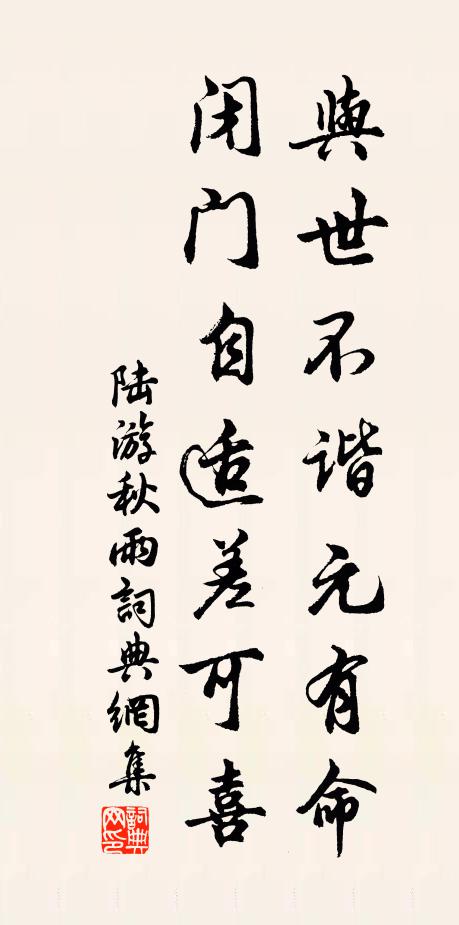 與世不谐元有命
闭门自适差可喜
陆游秋雨詞典網集
詞典網印